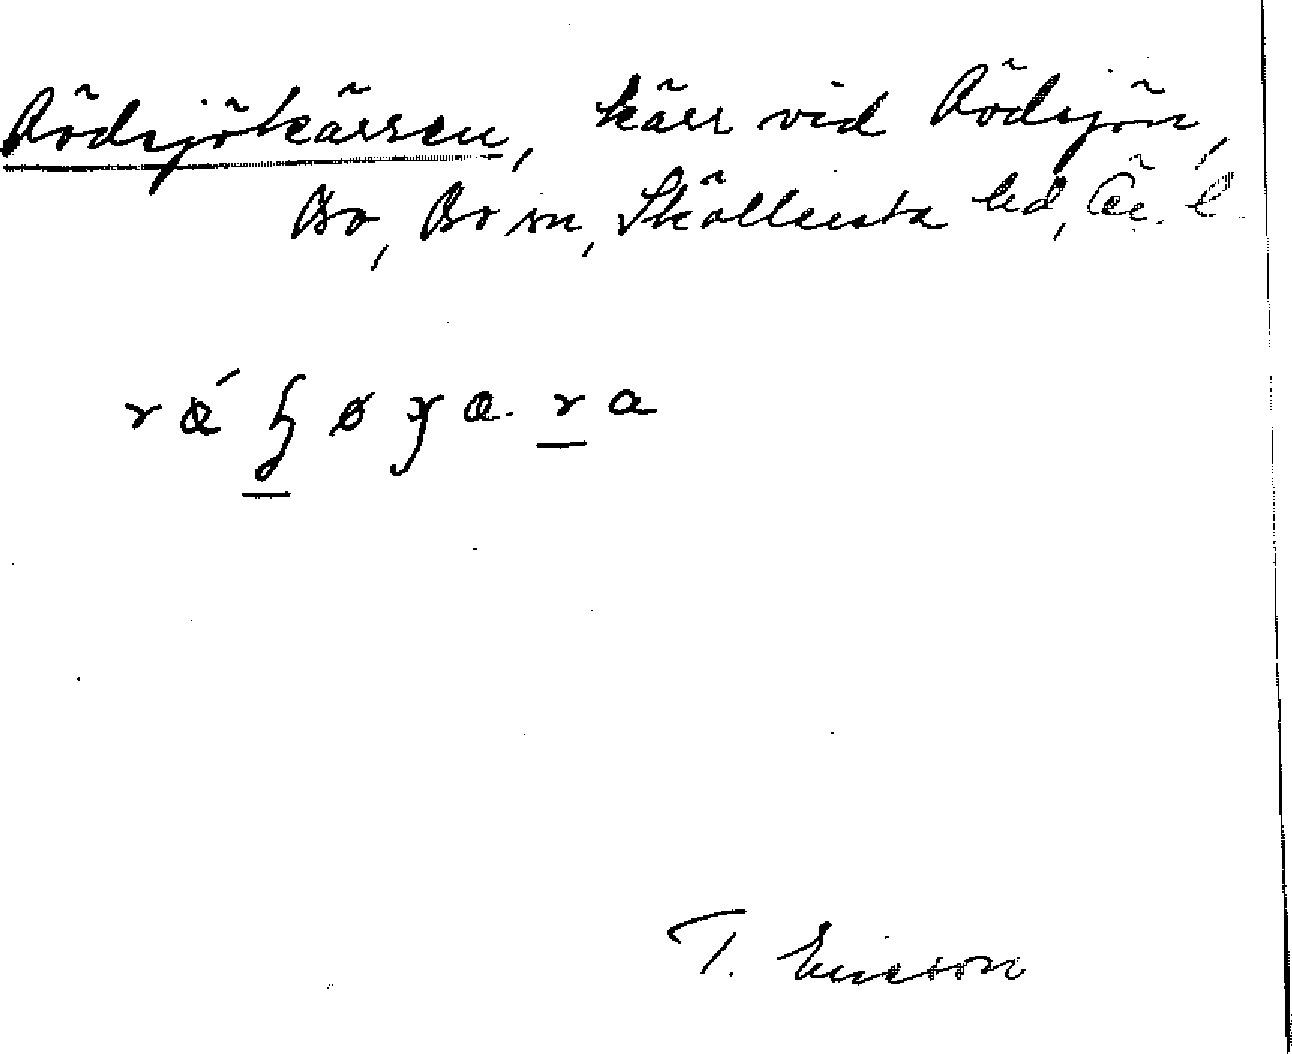 Rödsjökärren, kärr vid Rödsjön,
Bo, Bo sn, Sköllersta hd, Ör. l.
T. Ericson